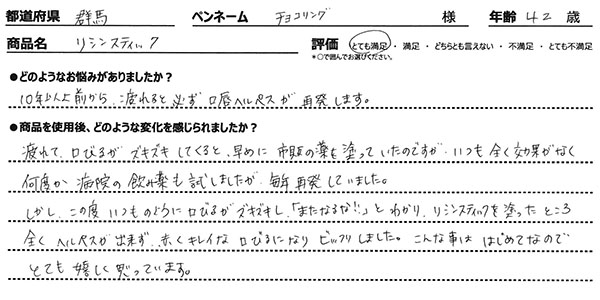 都道府県 群馬 ペンネーム チョコリング 様 年齢 42 歳
商品名 リシンスティック 評価 とても満足 ・ 満足 ・ どちらとも言えない ・ 不満足 ・ とても不満足
*○で囲んでお選びください。
●どのようなお悩みがありましたか？
10年以上前から、疲れると必ず口唇ヘルペスが再発します。
●商品を使用後、どのような変化を感じられましたか？
疲れて、口びるがズキズキしてくると、早めに市販の薬を塗っていたのですが、いつも全く効果がなく
何度か病院の飲み薬も試しましたが、毎年再発していました。
しかし、この度いつものように口びるがズキズキし、「またなるな!!」とわかり、リシンスティックを塗ったところ
全くヘルペスが出来ず、赤くキレイな口びるになりビックリしました。こんな事ははじめてなので
とても嬉しく思っています。